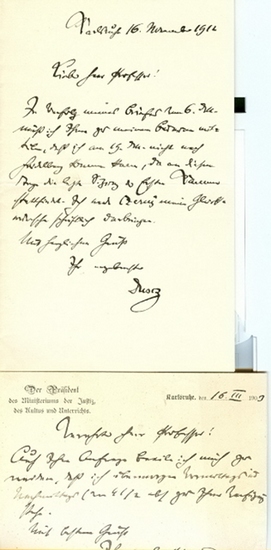 Karlsruhe 16. November 1912
Lieber Herr Professor!
In Verfolg meines Briefes vom 6. d. M.
muß ich Ihnen zu meinem Bedauern mit-
teilen, daß ich am 19. d. M. nicht nach
Heidelberg kommen kann, da an diesem
Tage die letzte Sitzung der Ersten Kammer
stattfindet. Ich werde
schriftlich darbringen.
Mit herzlichem Gruß
Ihr ergebenster
Dusch
Der Präsident
des Ministeriums der Justiz,
des Kultus und Unterrichts.
Karlsruhe, den 16 III
Verehrter Herr Professor!
Auf Ihre Anfrage beeile ich mich zu
melden, daß ich übermorgen Vormittags u
Nachmittags (von 4 1/2 ab) zu Ihrer Verfügung
stehe.
Mit bestem Gruße